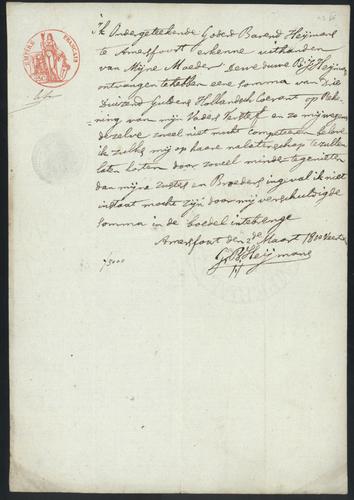 EMPIRE FRANÇAIS
ik Ondergeteekende Godert Barend Heijmans
te Amersfoort erkenne uit handen
van Mijne Moeder De weduwe B: J: Heijmans
ontvangen te hebben eene somma van Drie
Duizend Guldens Hollandsch Corant op Reke-
ning van mijn Vaders Versterf en zo mij wegens
dezelve zoveel niet mocht competeeren belove
ik zulks mij op haare nalatenschap te zullen
laten korten door zoveel minder te genieten
dan mijne zusters en Broeders ingeval ik niet
instaat mocht zijn door mij verschuldigde
somma in de boedel inte brengen
Amersfoort den 2de Maart 1800
ƒ 3000
G: B: Heijmans